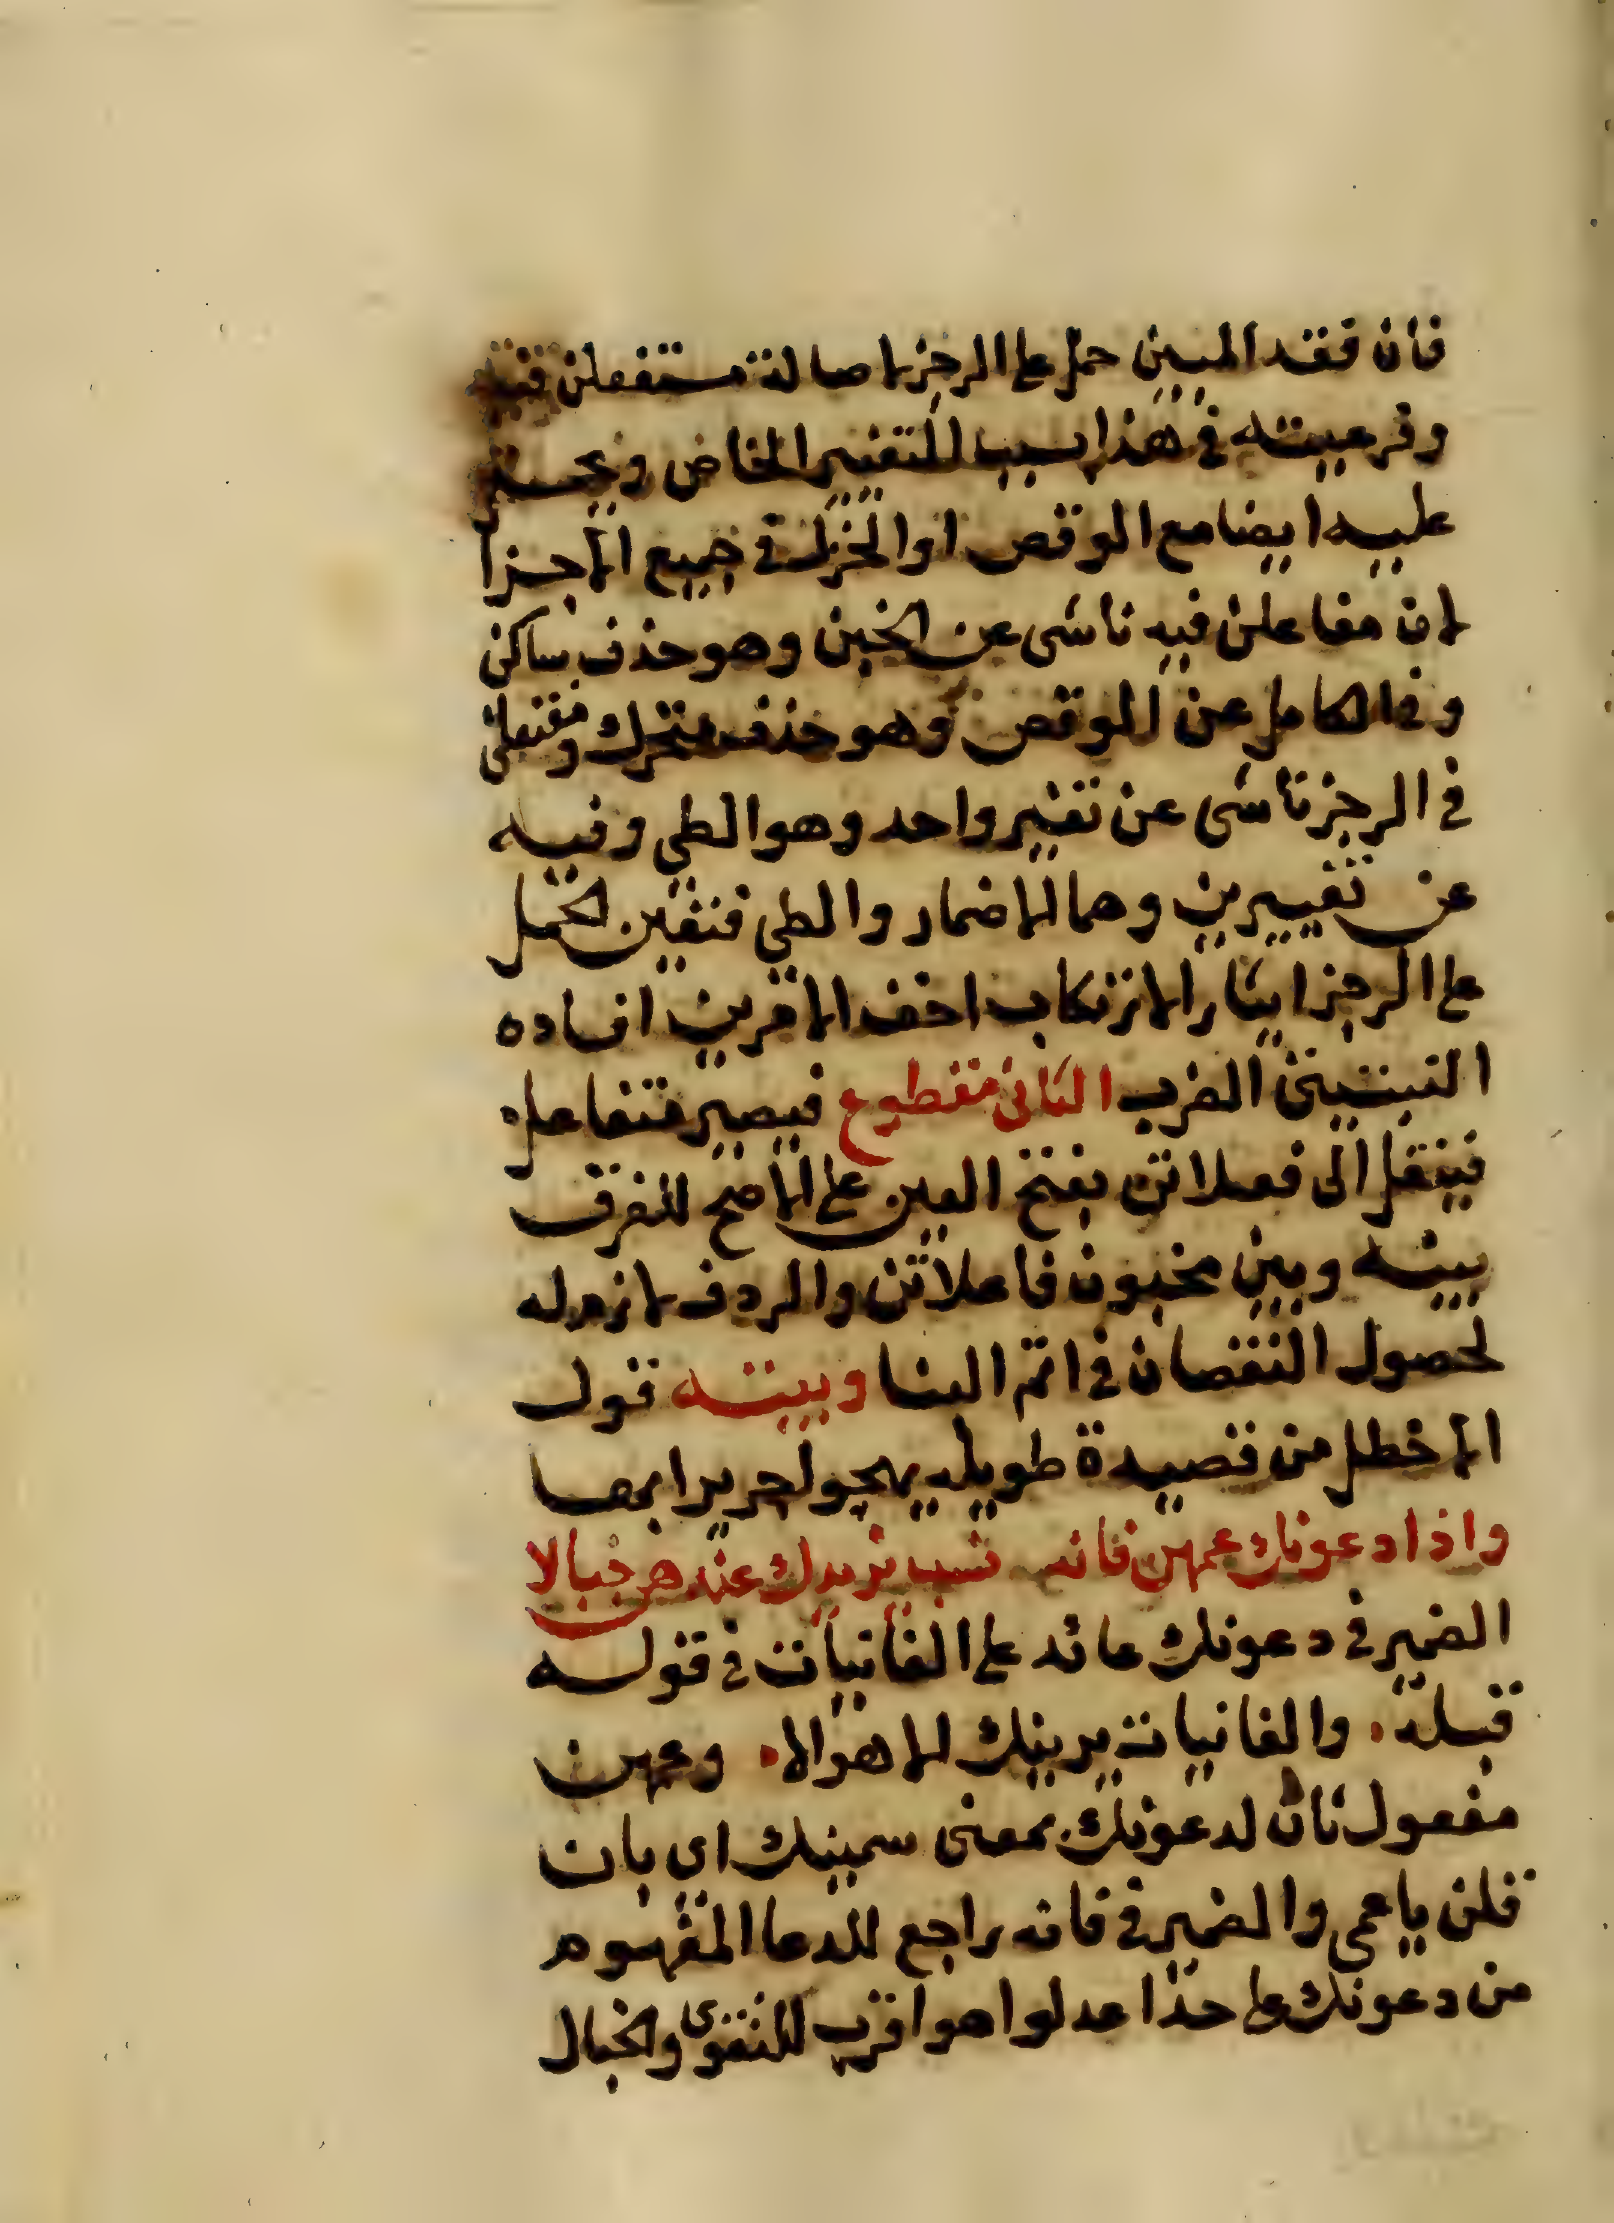 فان فقد المبين حمل على الرجز لاصالة مستفعلن فيه
وفرعيته في هذا بسبب التغيير الخاص ويحمل
عليه ايضا مع الوقص او الخزل في جميع الاجزا
لان مفاعلن فيه ناشى عن الخبن وهو حذف ساكن
وفي الكامل عن الوقص وهو حذف متحرك ومفتعلن
في الرجز ناشى عن تغيير واحد وهو الطي وفيه
عن تغييرين وهما الاضمار والطي فتعين الحمل
على الرجز ايثار الارتكاب اخف الامرين افاده
التبتيتى الضرب الثانى مقطوع فيصير متفاعل
فينقل الى فعلاتن بفتح العين على الاصح للفرق
بينه وبين مخبون فاعلاتن والردف لازم له
لحصول النقصان في اتم البنا وبيته قول
الاخطل من قصيدة طويله يهجو جريرا بها
واذا دعونك عمهن فانه نسب يزيدك عندهن خبالا
الضمير في دعونك عائد على الغانيات في قوله
قبله . والغانيات يرينك الاهوالا . وعمهن
مفعول ثان لدعونك بمعنى سمينك اي بان
قلن يا عمى والضمير في فانه راجع للدعا المفهوم
من دعونك على حد اعدلوا هو اقرب للتقوى والخبال